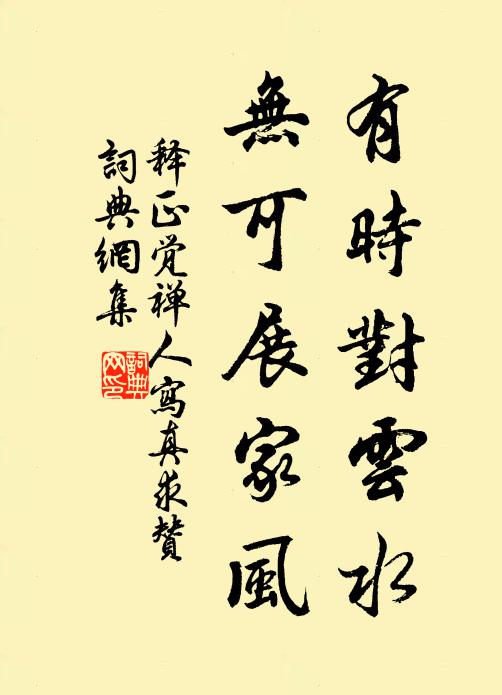 有時對雲水
無可展家風
释正覚禅人寫真求贊
詞典網集
詞典網印